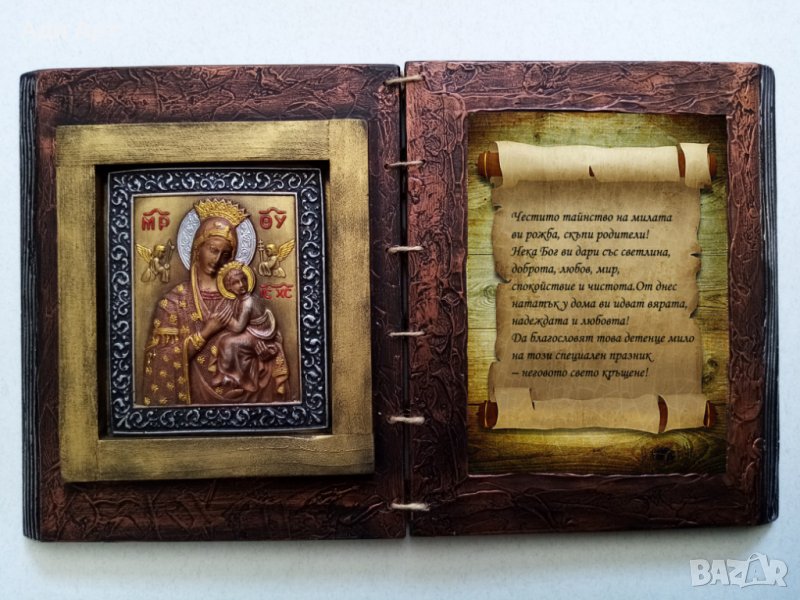 МР ѲУ
ІС ХС
Честито тайнство на милата
ви рожба, скъпи родители!
Нека Бог ви дари със светлина,
доброта, любов, мир,
спокойствие и чистота.От днес
нататък у дома ви идват вярата,
надеждата и любовта!
Да благословят това детенце мило
на този специален празник
– неговото свето кръщене!
BAZAR